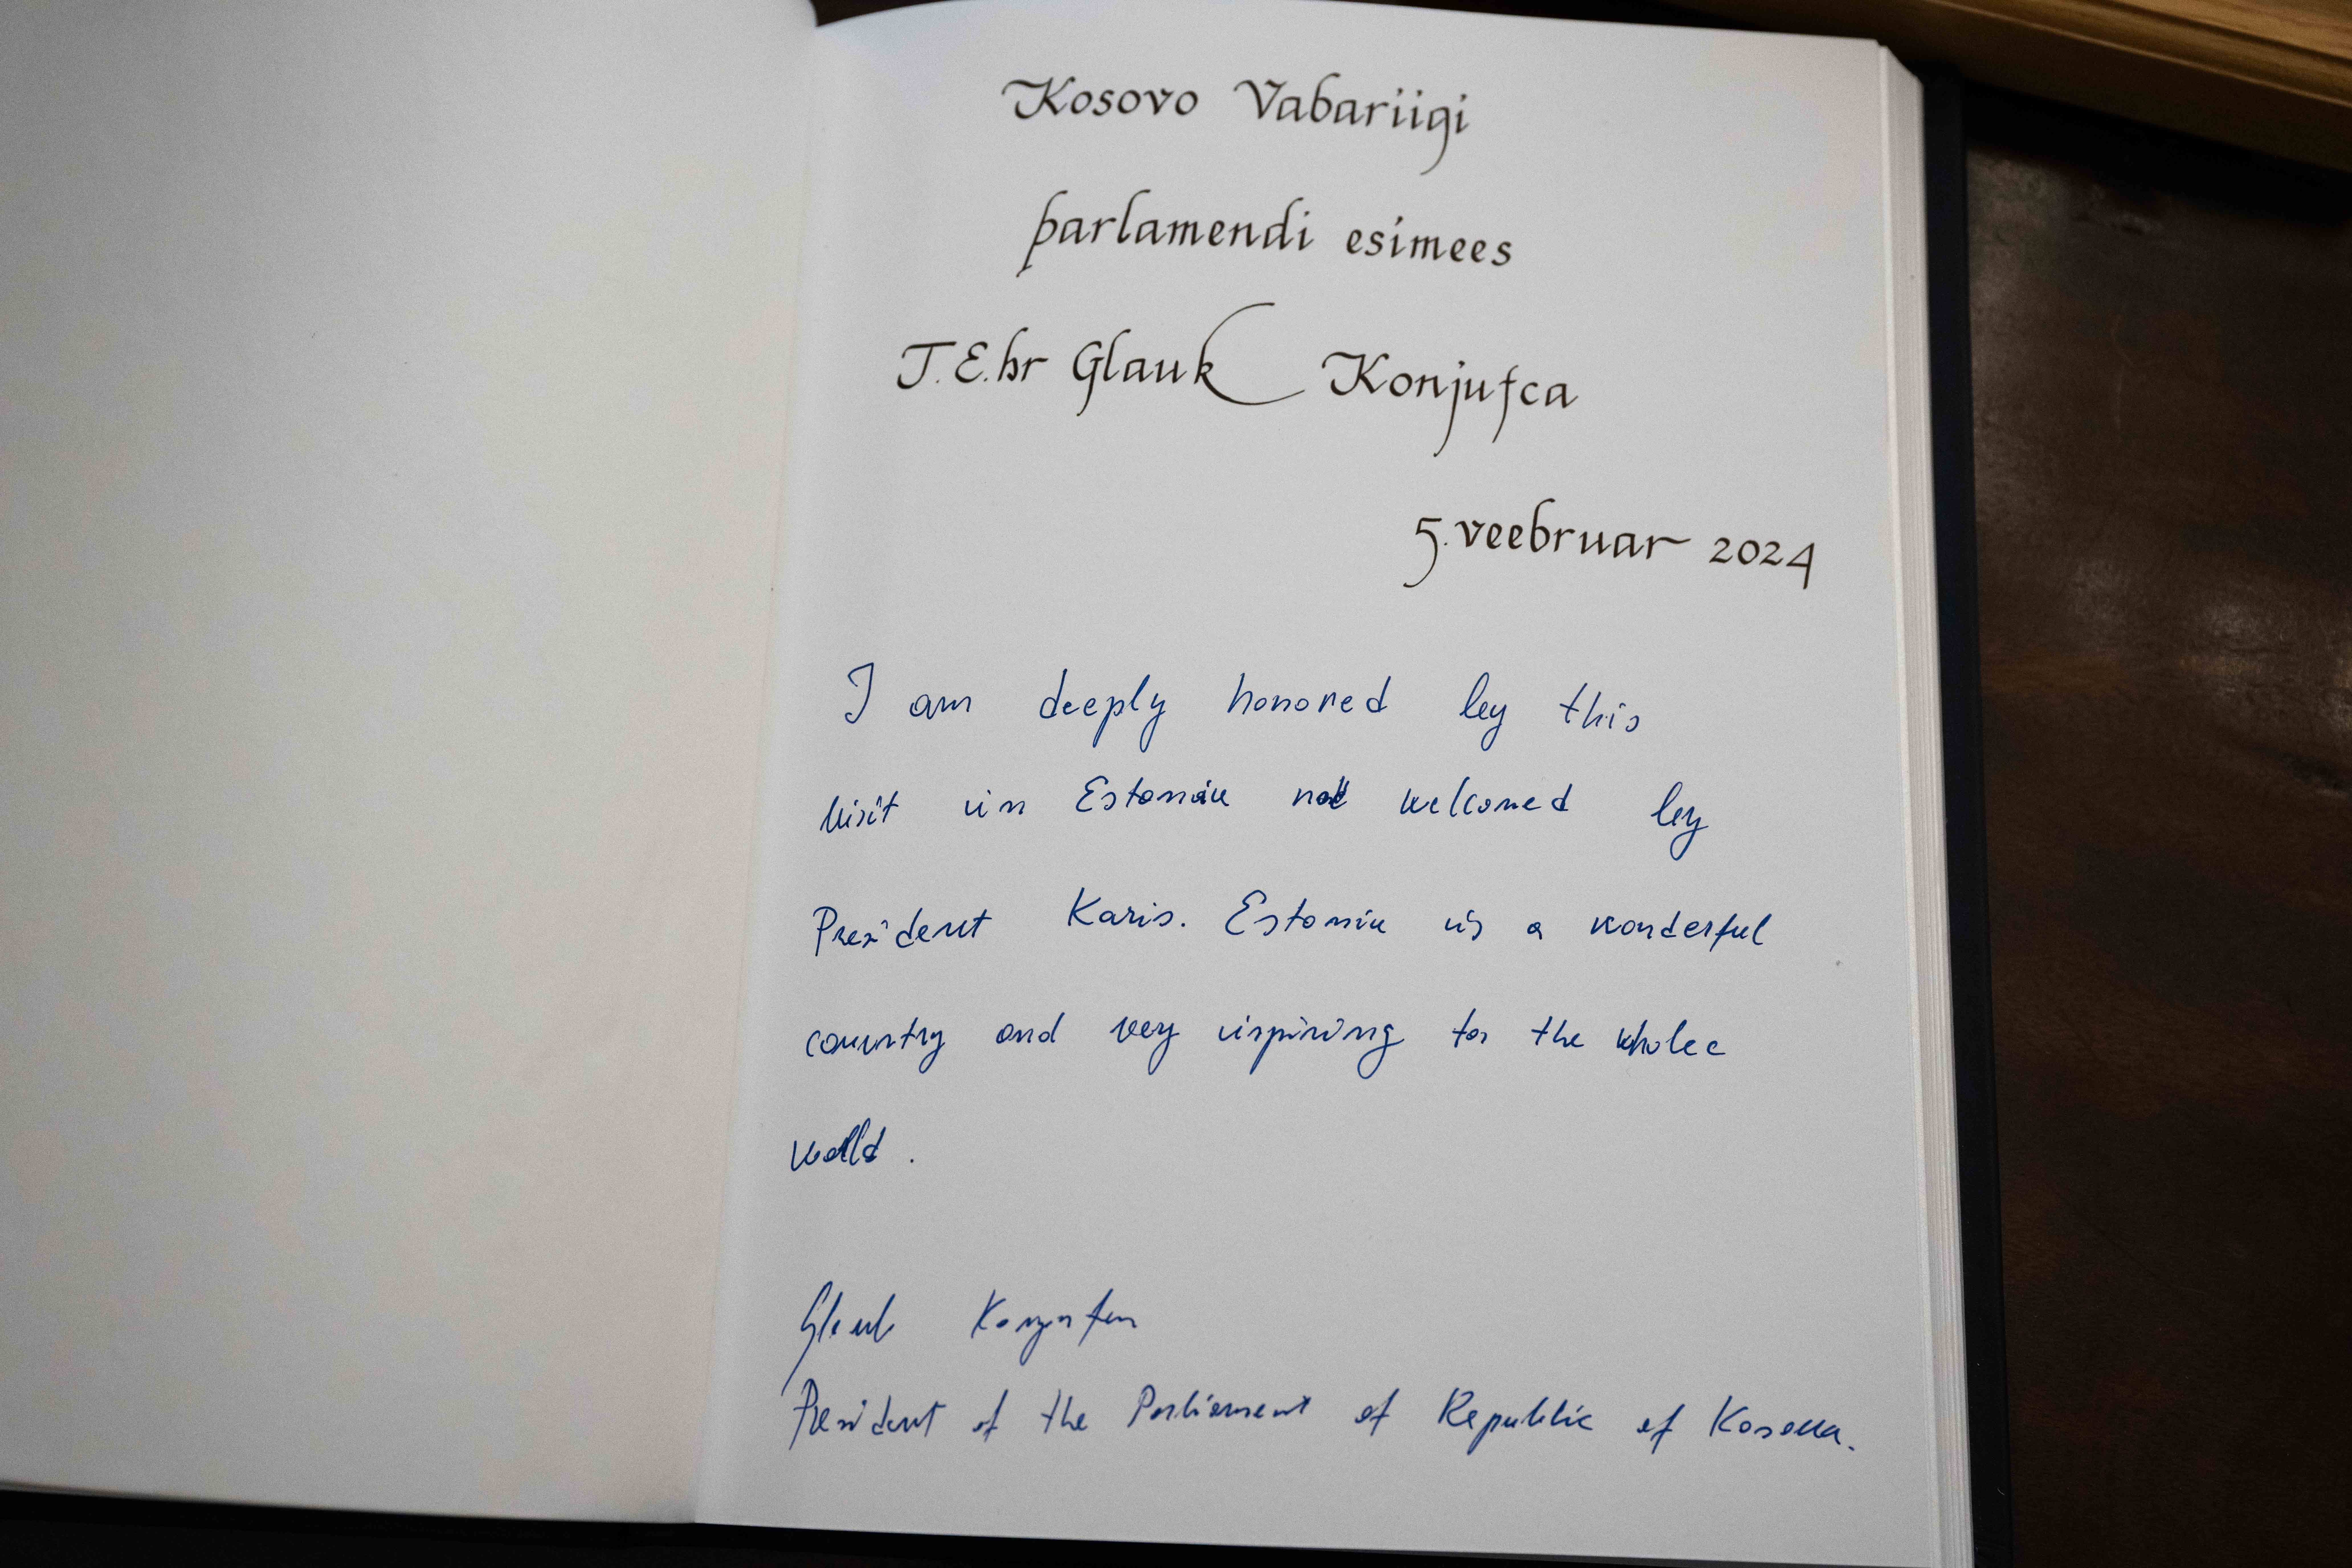 Kosovo Vabariigi
parlamendi esimees
T.E.hr Glauk Konjufca
5. veebruar 2024
I am deeply honored by this
visit in Estonia welcomed by
President Karis. Estonia is a wonderful
country and very inspiring for the whole
world.
Glauk Konjufca
President of the Parliament of Republic of Kosova.